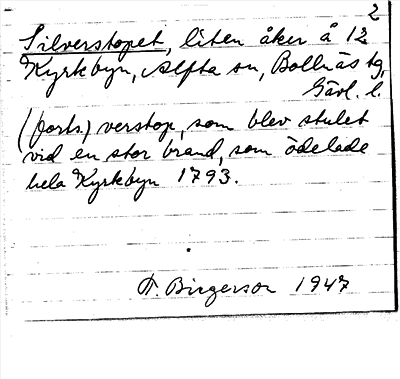 2
Silverstopet, liten åker å 12
Kyrkbyn, Alfta sn, Bollnäs tg,
Gävl. l.
(forts.) verstop, som blev stulet
vid en stor brand, som ödelade
hela Kyrkbyn 1793.
F. Birgerson 1947